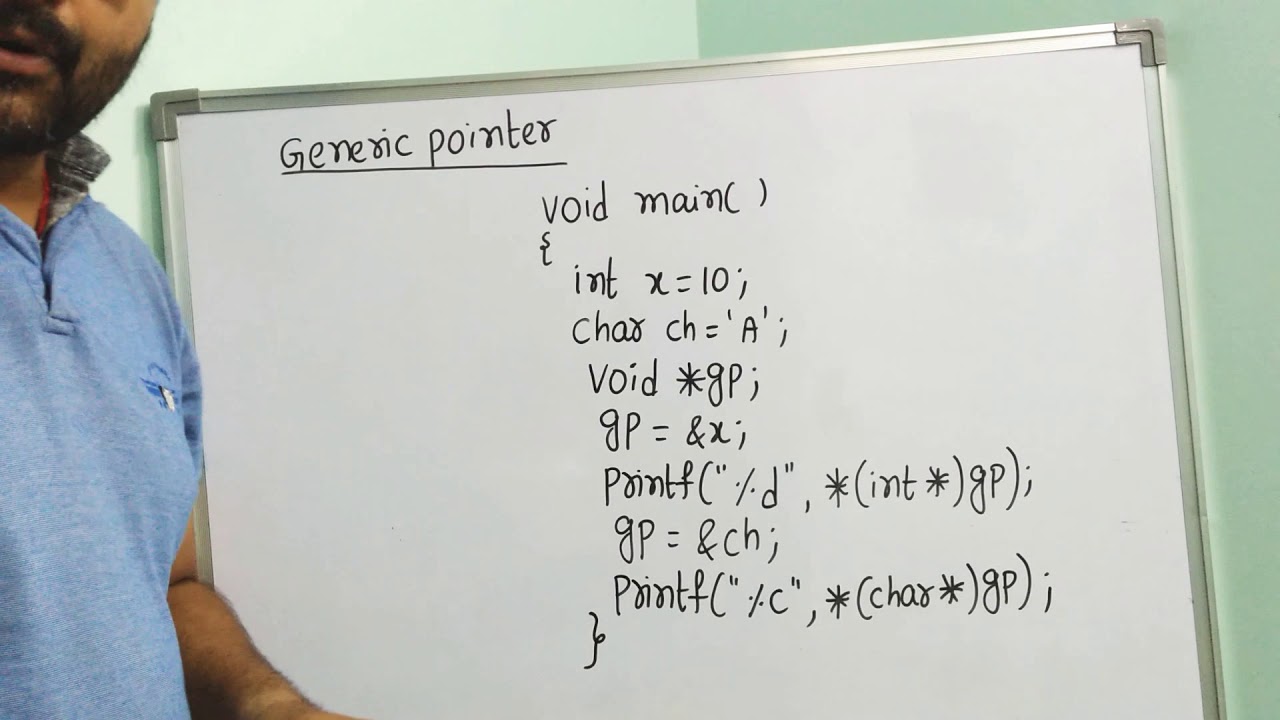 Generic pointer
void main( )
{
int x=10;
char ch='A';
void *gp;
gp = &x;
printf("%d", *(int *)gp);
gp = &ch;
printf("%c", *(char*)gp);
}